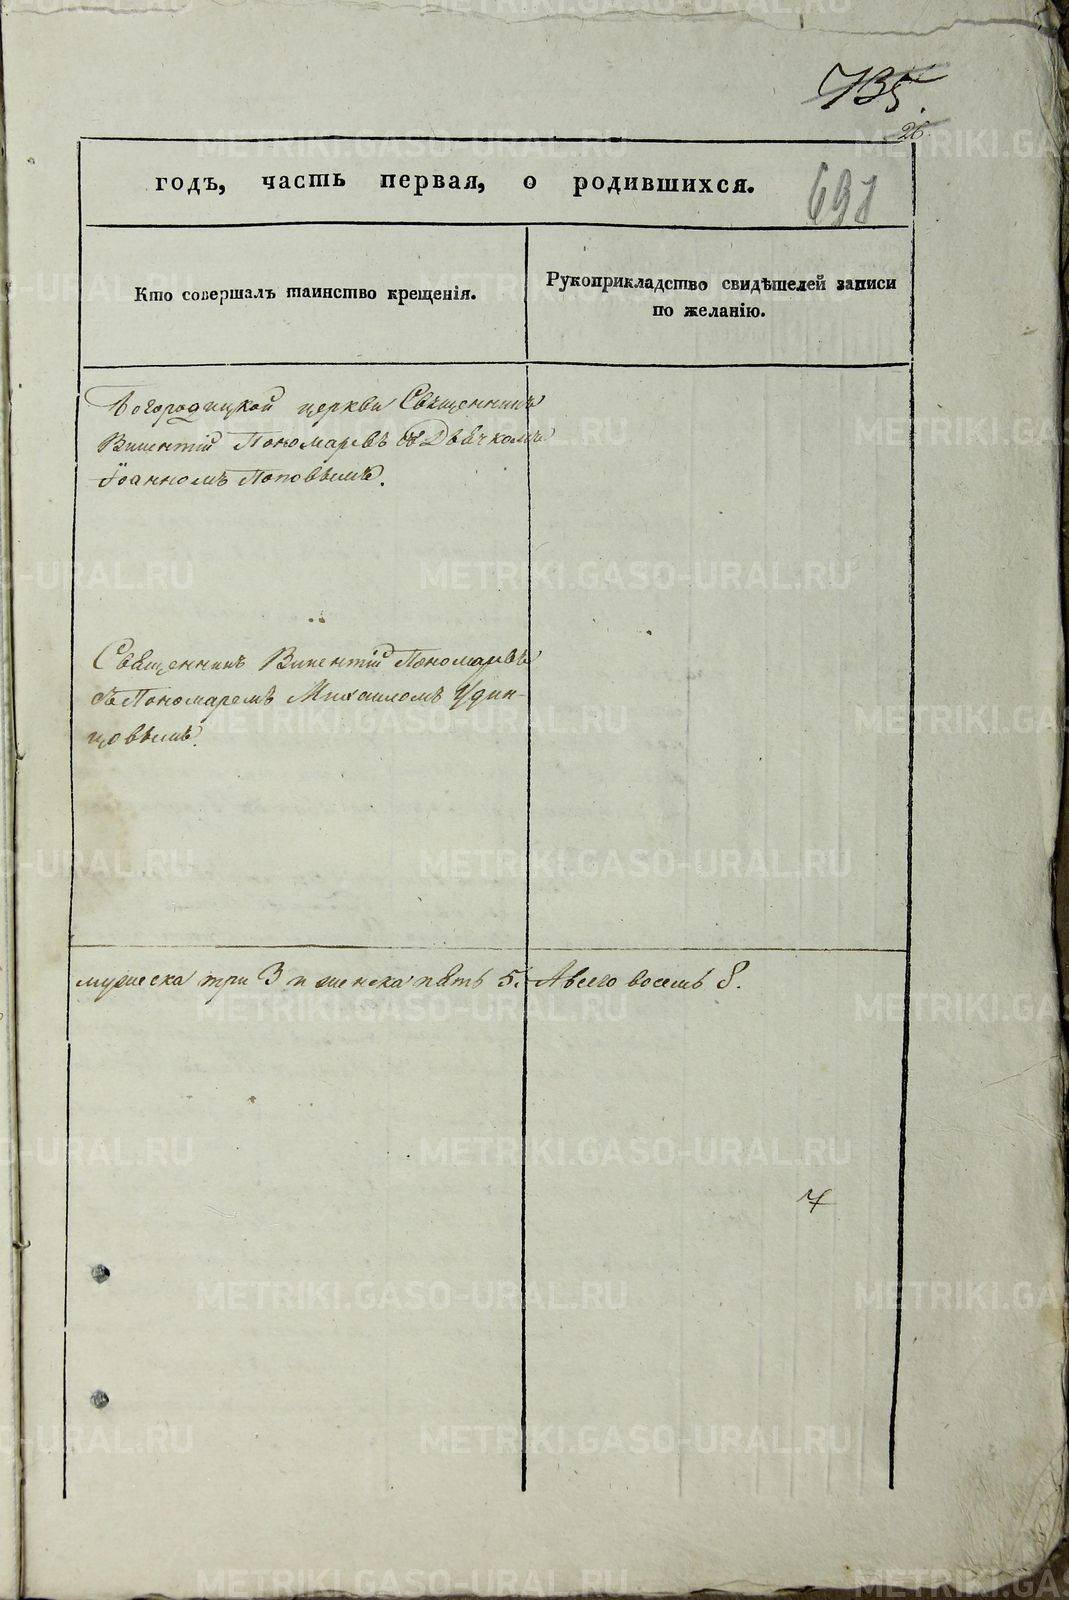 735.
26.
годъ, часть первая, о родившихся.
691
Кто совершалъ таинство крещенія.
Рукоприкладство свидѣтелей записи
по желанію.
Богородицкой церкви Священникъ
Викентій Пономаревъ съ Дьячкомъ
Іоанномъ Поповымъ.
Священникъ Викентій Пономаревъ
съ Пономаремъ Михаиломъ Удин-
цовымъ.
мужеска три 3 и женска пять 5. А всего восемь 8.
METRIKI.GASO-URAL.RU